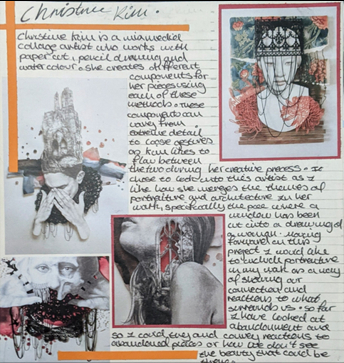 Christine Kim.
Christine Kim is a mixed media
collage artist who works with
paper cut, pencil drawing and
water colour. She creates different
components for
her pieces using
each of these
methods. These
components can
vary from
extreme detail
to loose gestures
as Kim likes to
flow between
the two during her creative process. I
chose to look into this artist as I
like how she merges the themes of
portraiture and architecture in her
work, specifically the piece where a
window has been
cut into a drawing of
a mouth. Moving
forward in this
project I would like
to include portraiture
in my work as a way
of showing our
connection and
reactions to what
surrounds us. So far
I have looked at
abandonment and
so I could try and convey reactions to
abandoned places or how we don't see
the beauty that could be